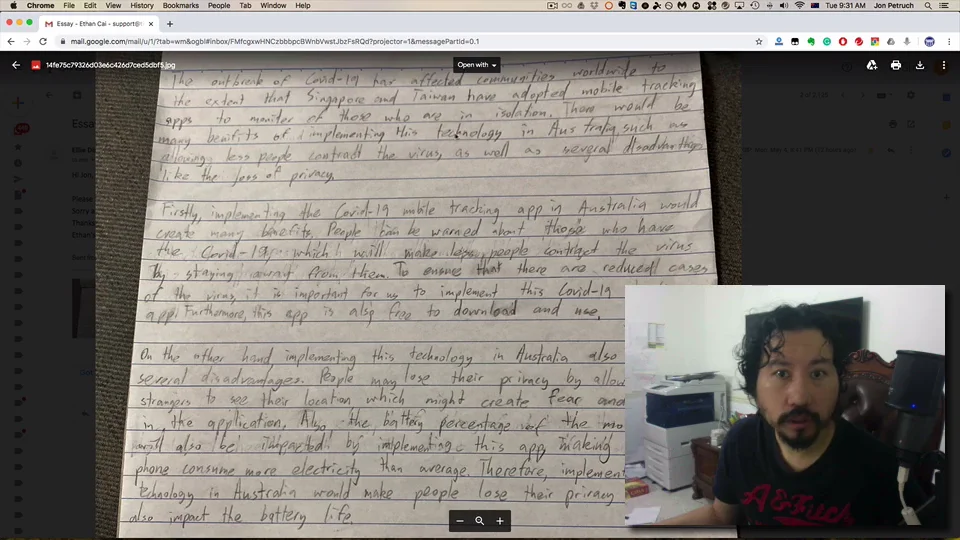 Chrome File Edit View History Bookmarks People Tab Window Help
Tue 9:31 AM Jon Petruch
Essay - Ethan Cai - support@
mail.google.com/mail/u/1/?tab=wm&ogbl#inbox/FMfcgxwHNCzbbbpcBWnbVwstJbzFsRQd?projector=1&messagePartId=0.1
14fe75c79326d03e6c426d7ced5dbf5.jpg
Open with
The outbreak of Covid-19 has affected communities worldwide to
the extent that Singapore and Taiwan have adopted mobile tracking
apps to moniter of those who are in isolation. There would be
many benifits of implementing this technology in Australia, such as
allowing less people contract the virus, as well as several disadvantages
like the loss of privacy.
Firstly, implementing the Covid-19 mobile tracking app in Australia would
create many benefits. People can be warned about those who have
the Covid-19, which will make less people contract the virus
by staying away from them. To ensure that there are reduced cases
of the virus, it is important for us to implement this Covid-19
app. Furthermore, this app is also free to download and use.
On the other hand implementing this technology in Australia also
several disadvantages. People may lose their privacy by allow
strangers to see their location which might create fear and
in the application. Also, the battery percentage of the mo
will also be impacted by implementing this app, making
phone consume more electricity than average. Therefore, implement
technology in Australia would make people lose their privacy
also impact the battery life.